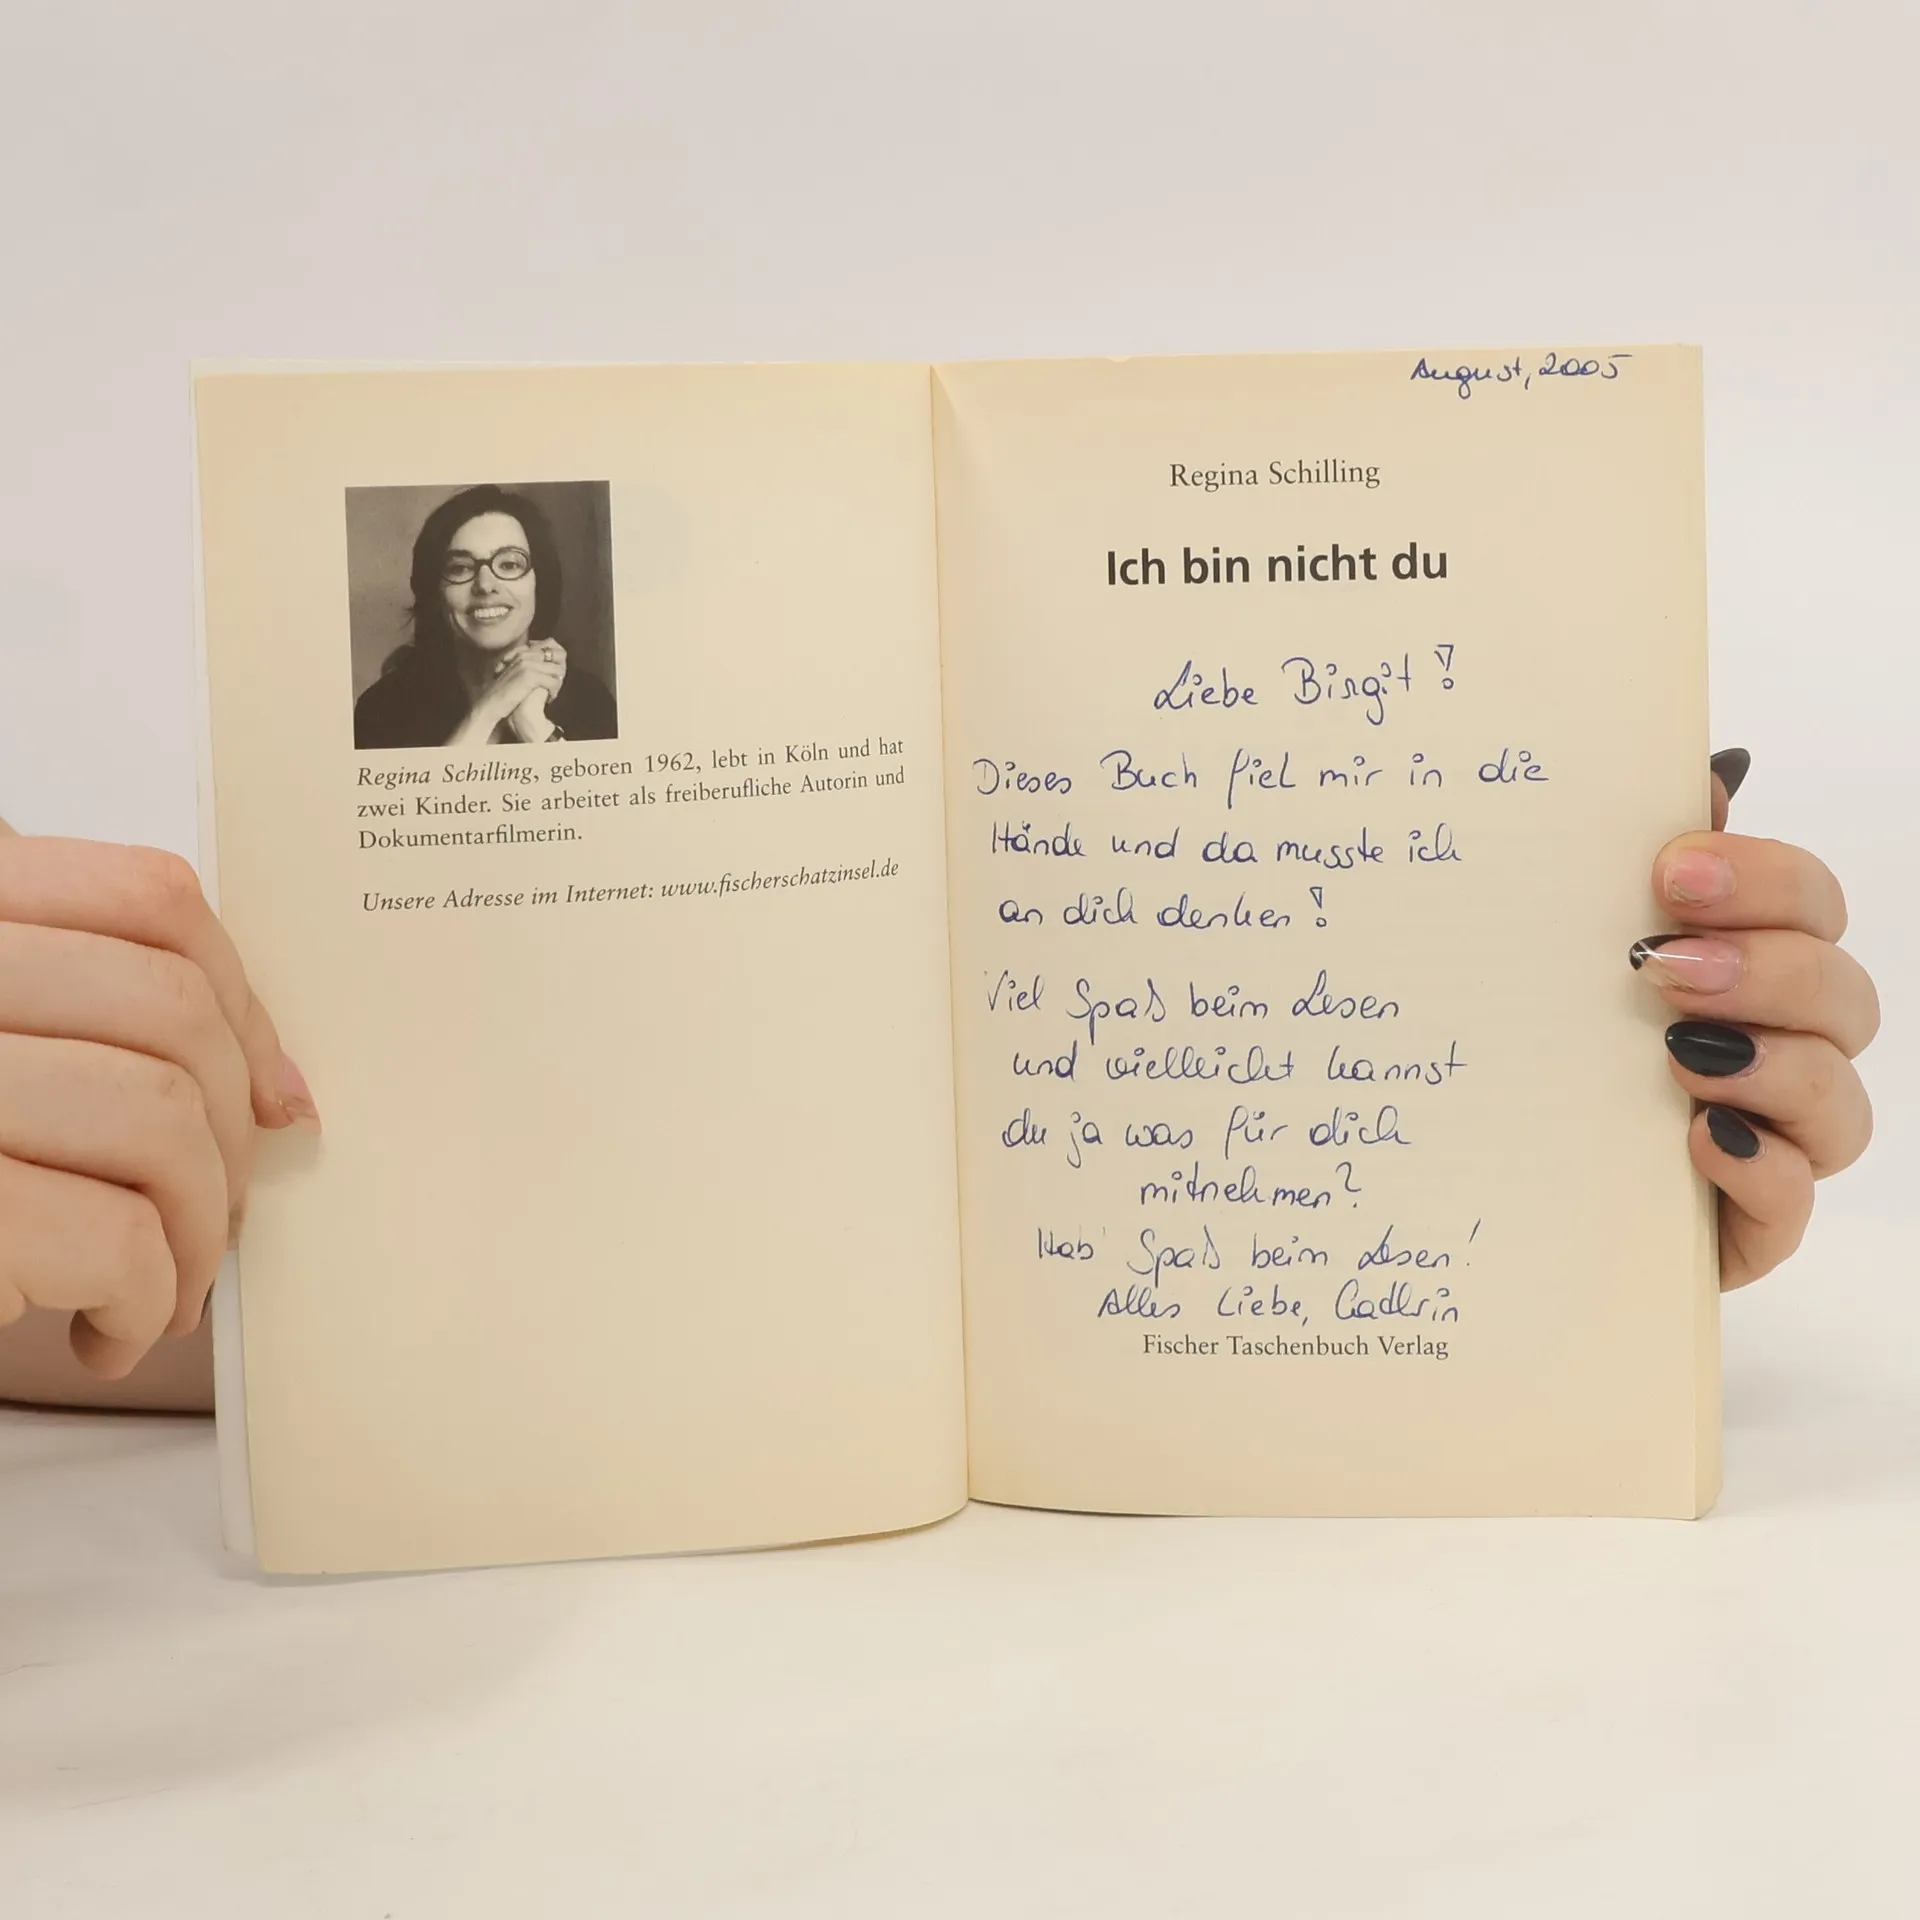 Regina Schilling, geboren 1962, lebt in Köln und hat
zwei Kinder. Sie arbeitet als freiberufliche Autorin und
Dokumentarfilmerin.
Unsere Adresse im Internet: www.fischerschatzinsel.de
August, 2005
Regina Schilling
Ich bin nicht du
Liebe Birgit!
Dieses Buch fiel mir in die
Hände und da musste ich
an dich denken!
Viel Spaß beim Lesen
und vielleicht kannst
du ja was für dich
mitnehmen?
Hab' Spaß beim Lesen!
Alles Liebe,
Fischer Taschenbuch Verlag